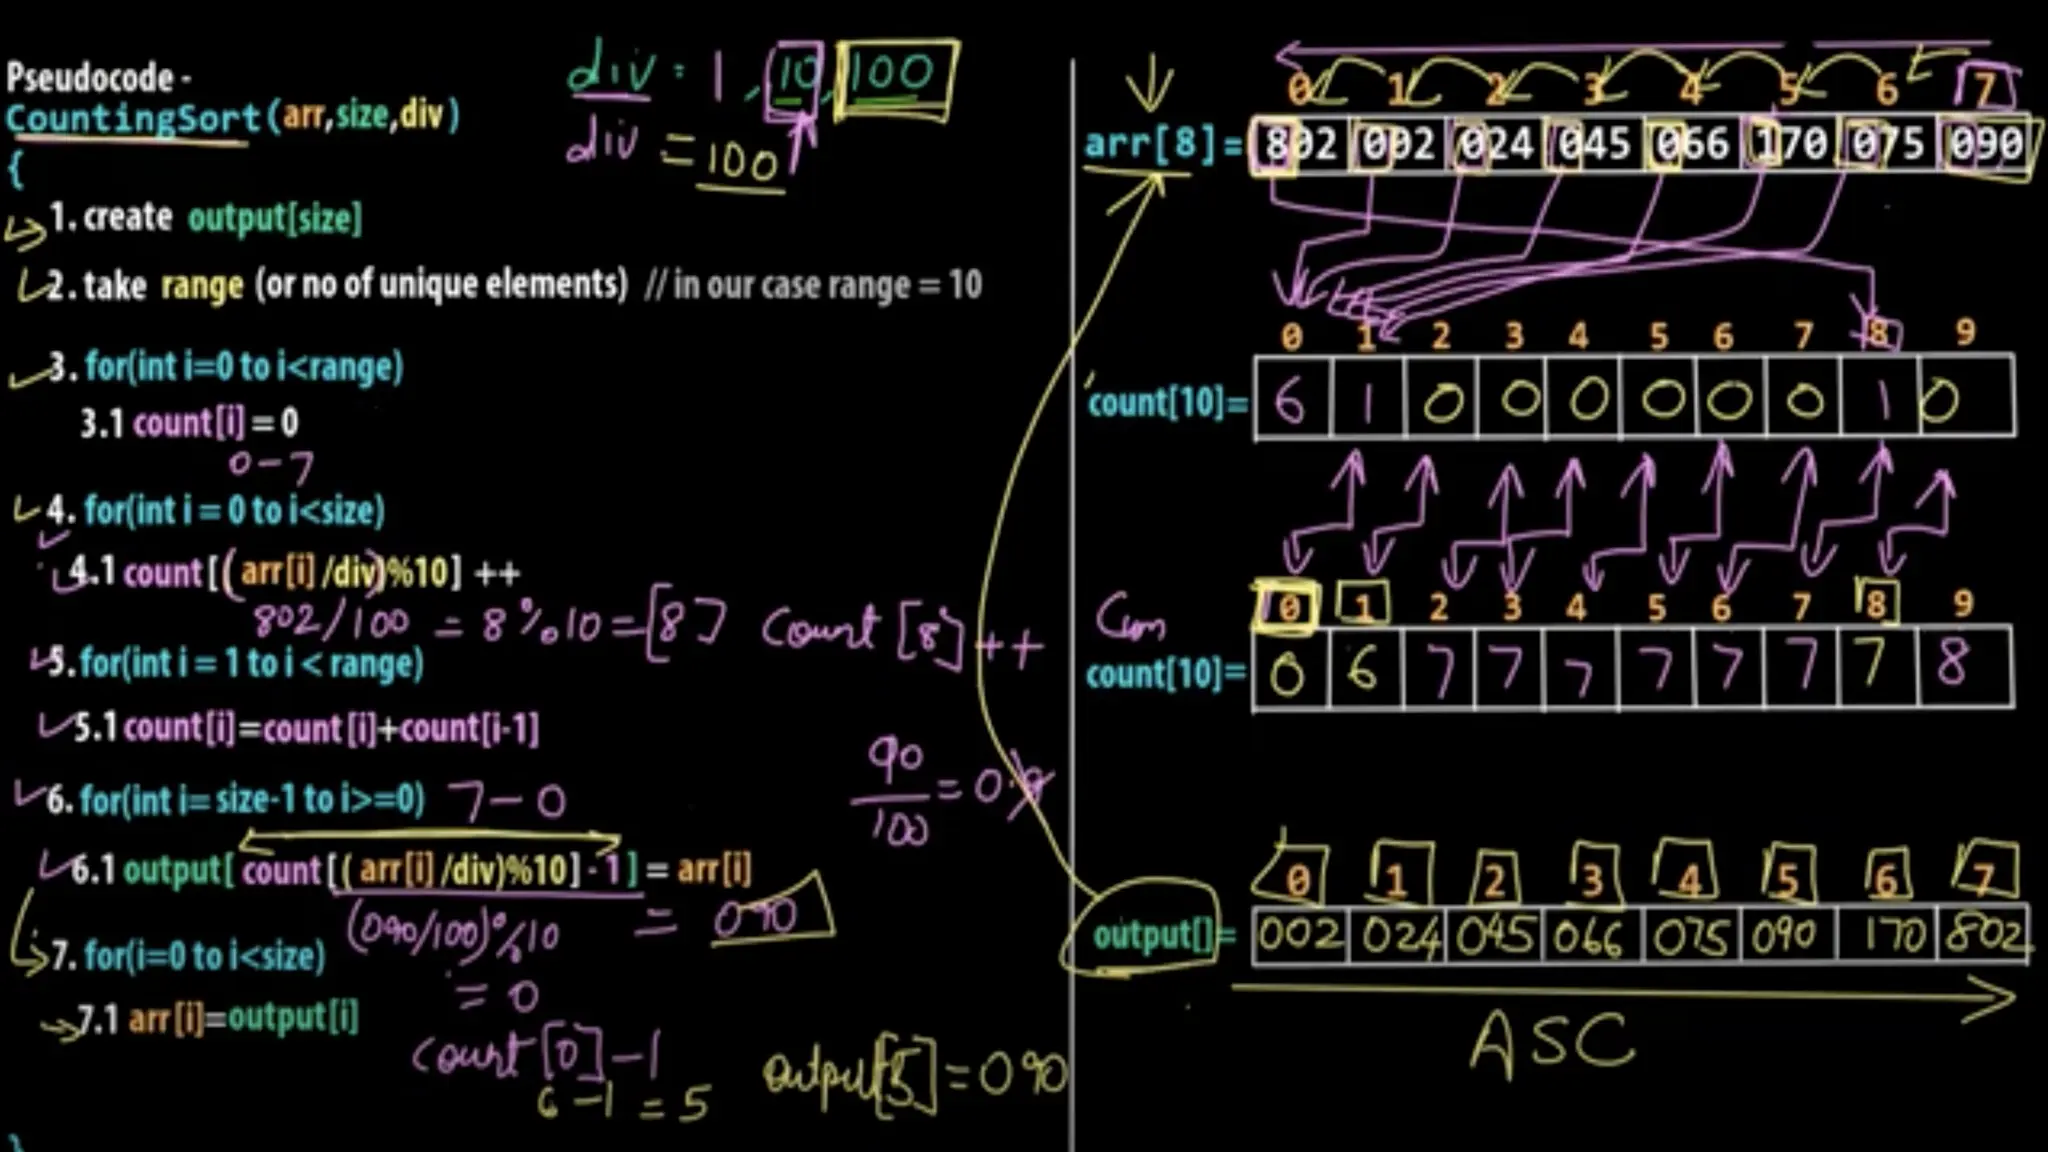 Pseudocode -
CountingSort(arr,size,div)
{
1. create output[size]
2. take range (or no of unique elements) // in our case range = 10
3. for(int i=0 to i<range)
3.1 count[i] = 0
0-7
4. for(int i = 0 to i<size)
4.1 count[(arr[i]/div)%10] ++
802/100 = 8%10=[8] Count[8]++
5. for(int i = 1 to i < range)
5.1 count[i]=count[i]+count[i-1]
6. for(int i= size-1 to i>=0) 7-0
6.1 output[ count[(arr[i]/div)%10]-1] = arr[i]
(090/100)%10 = 090
= 0
7. for(i=0 to i<size)
7.1 arr[i]=output[i]
count[0]-1
6-1=5
output[5]=090
}
div = 1, 10, 100
div = 100
90
100
= 0.9
0 1 2 3 4 5 6 7
arr[8]= 802 002 024 045 066 170 075 090
0 1 2 3 4 5 6 7 8 9
count[10]= 6 1 0 0 0 0 0 0 1 0
Cum 0 1 2 3 4 5 6 7 8 9
count[10]= 0 6 7 7 7 7 7 7 7 8
0 1 2 3 4 5 6 7
output[]= 002 024 045 066 075 090 170 802
ASC